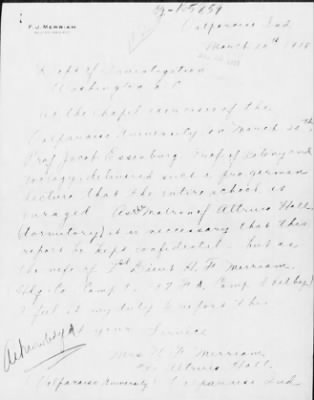 F. J. MERRIAM
Valparaiso Ind.
March 20th 1918
Dept of Investigation
Washington D.C.
At the chapel exercises of the
Valparaiso University on March 20th
Prof Jacob Essenberg Prof of Botony and
Zoology, delivered such a pro-german
lecture that the entire school is
enraged. As Matron of Altruria Hall
(dormitory) it is necessary that this
report be kept confidential - but as
the wife of 1st Lieut H. F. Merriam
I feel it my duty to report this
at your service
Acknowledged
Mrs H. F. Merriam
Altruria Hall.
(Valparaiso University) Valparaiso Ind.